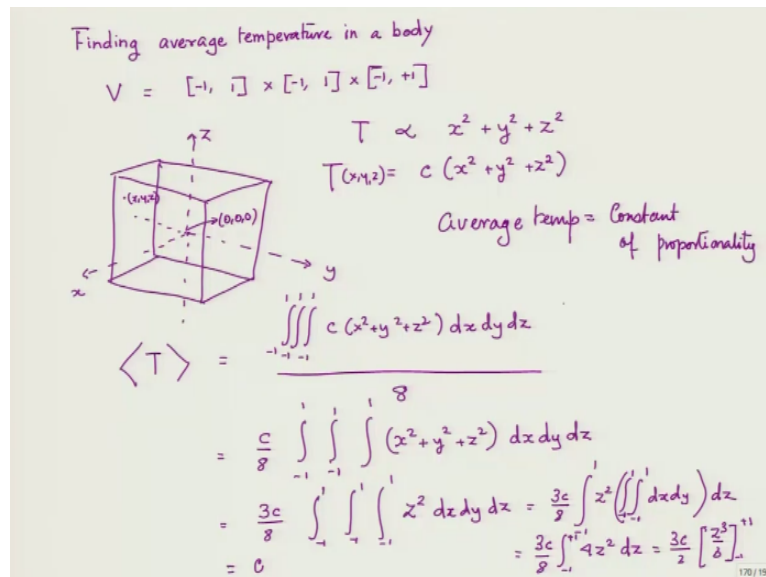 Finding average temperature in a body
V = [-1, 1] × [-1, 1] × [-1, +1]
T ∝ x² + y² + z²
T(x,y,z) = c (x² + y² + z²)
average temp = Constant of proportionality
z
(x,y,z)
(0,0,0)
x
y
⟨T⟩ = ∫_{-1}^{1} ∫_{-1}^{1} ∫_{-1}^{1} c (x²+y²+z²) dx dy dz / 8
= c/8 ∫_{-1}^{1} ∫_{-1}^{1} ∫_{-1}^{1} (x²+y²+z²) dx dy dz
= 3c/8 ∫_{-1}^{1} ∫_{-1}^{1} ∫_{-1}^{1} z² dx dy dz = 3c/8 ∫_{-1}^{1} z² (∫∫_{-1}^{1} dx dy) dz
= c
= 3c/8 ∫_{-1}^{+1} 4z² dz = 3c/2 [z³/3]_{-1}^{+1}